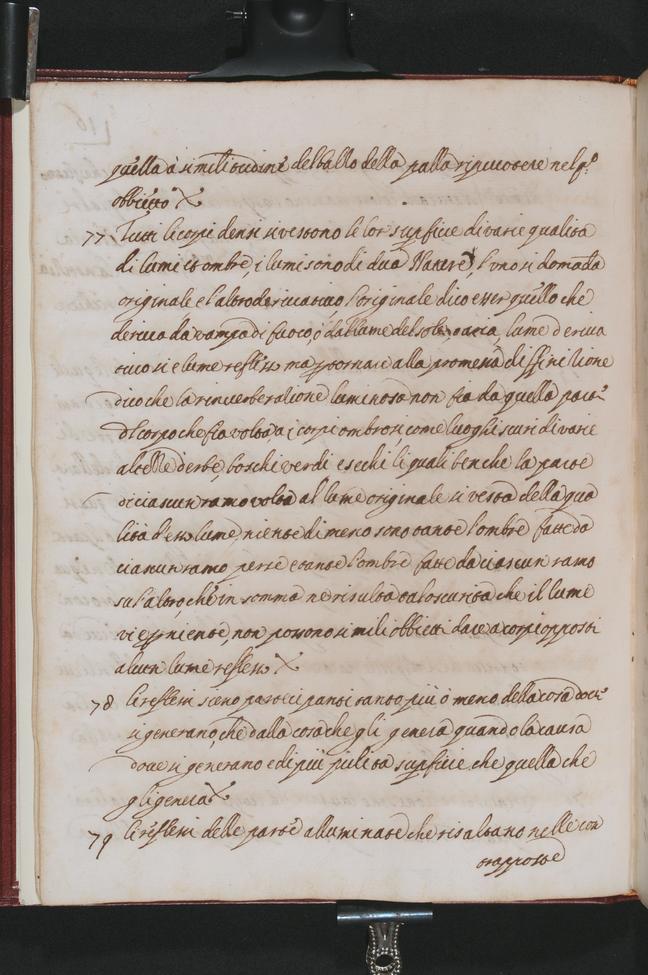 quella à similitudine del ballo della palla ripercotere nel p.º
obbietto
77 Tutti li corpi densi si vestono le lor supficie di varie qualità
di lumi et ombre, i lumi sono di dua Nature, l'uno si domāda
originale e l'altro derivativo, l'originale dico esser quello che
deriva da vampa di fuoco, ò dal lume del sole, o aria, lume deriva
tivo si è lume reflesso ma p tornare alla promessa diffinitione
dico che la rinverberatione luminosa non fia da quella parte
d'l corpo che fia volta a i corpi ombrosi, come luoghi scuri di varie
altezze d'erbe, boschi verdi e secchi li quali benche la parte
di ciascun ramo volta al lume originale si vesta della qua
lità d'esso lume, niente di meno sono tante l'ombre fatte da
ciascun ramo per se e tante l'ombre fatte da ciascun ramo
su l'altro, che in somma ne risulta tal oscurità che il lume
vi è p niente, non possono simili obbietti dare a corpi opposti
alcun lume reflesso
78 li reflessi sieno partecipanti tanto più ò meno della cosa dove
si generano, che dalla cosa che gli genera quando la cosa
dove si generano è di più pulita supficie che quella che
gli genera
79 li reflessi delle parte alluminate che risaltano nelle con
trapposte